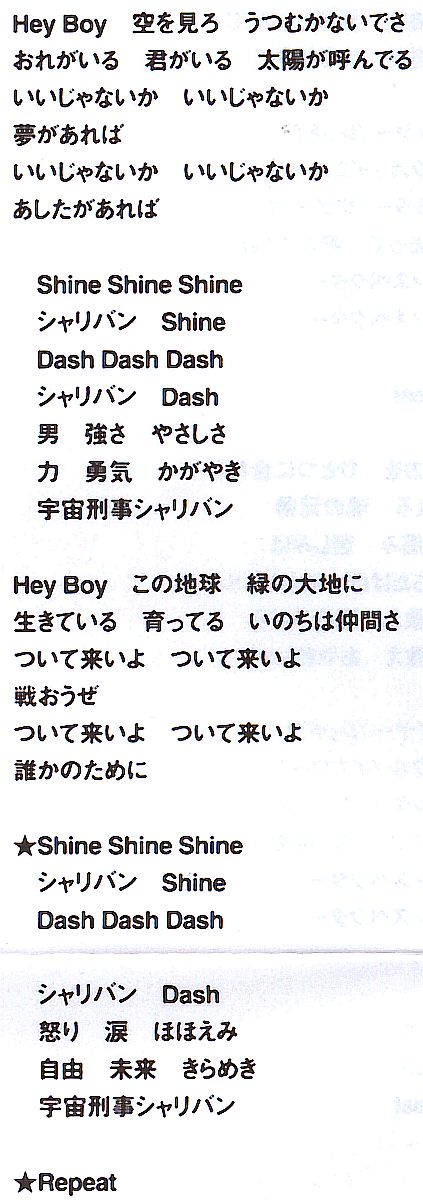 Hey Boy　空を見ろ　うつむかないでさ
おれがいる　君がいる　太陽が呼んでる
いいじゃないか　いいじゃないか
夢があれば
いいじゃないか　いいじゃないか
あしたがあれば
Shine Shine Shine
シャリバン　Shine
Dash Dash Dash
シャリバン　Dash
男　強さ　やさしさ
力　勇気　かがやき
宇宙刑事シャリバン
Hey Boy　この地球　緑の大地に
生きている　育ってる　いのちは仲間さ
ついて来いよ　ついて来いよ
戦おうぜ
ついて来いよ　ついて来いよ
誰かのために
★Shine Shine Shine
シャリバン　Shine
Dash Dash Dash
シャリバン　Dash
怒り　涙　ほほえみ
自由　未来　きらめき
宇宙刑事シャリバン
★Repeat